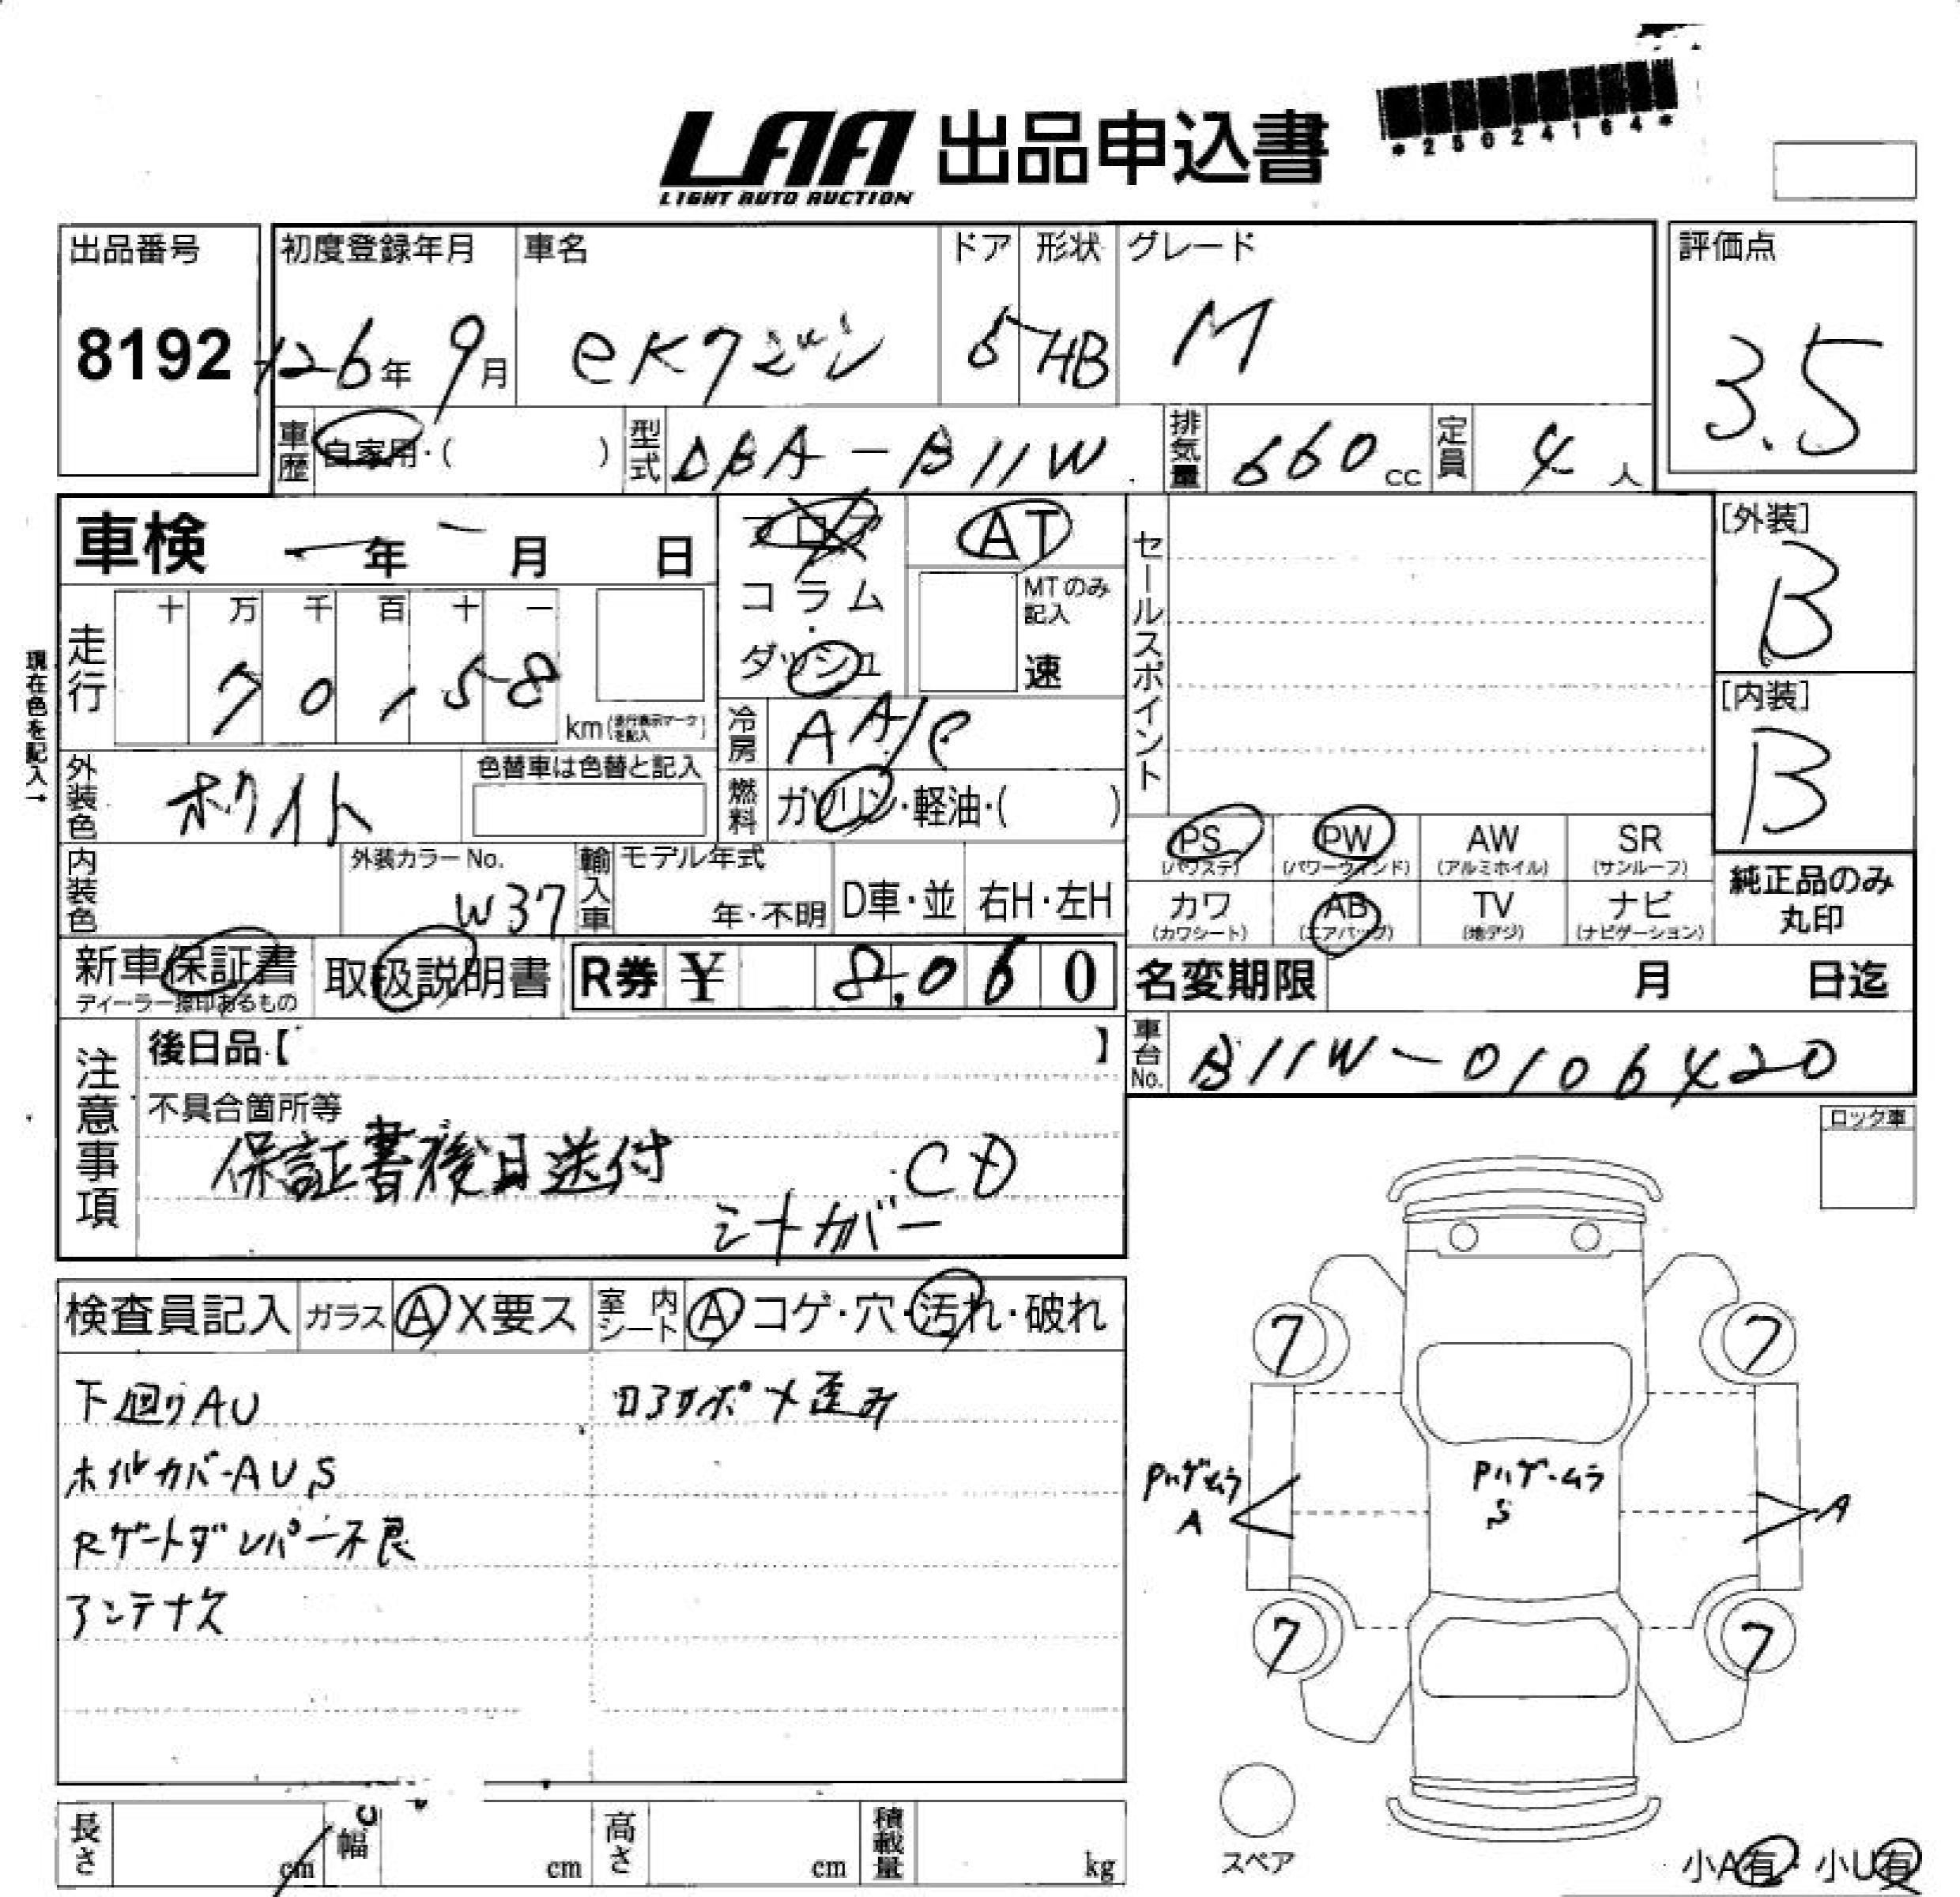 LAA 出品申込書
LIGHT AUTO AUCTION
*25024164*
出品番号
8192
初度登録年月
H26年 9月
車名
eKワゴン
ドア
5
形状
HB
グレード
M
評価点
3.5
車歴 自家用・( )
型式 DBA-B11W
排気量 660cc
定員 4人
車検 ー年 ー月 日
フロア
コラム
・
ダッシュ
AT
MTのみ記入
速
セールスポイント
[外装]
B
[内装]
B
現在色を記入→
走行
十 万 千 百 十 一
7 0 1 5 8
km(走行表示マークを記入)
冷房 AA/C
燃料 ガソリン・軽油・( )
外装色 ホワイト
色替車は色替と記入
内装色
外装カラーNo.
W37
輸入車
モデル年式
年・不明
D車・並
右H・左H
PS
(パワステ)
PW
(パワーウィンド)
AW
(アルミホイル)
SR
(サンルーフ)
カワ
(カワシート)
AB
(エアバッグ)
TV
(地デジ)
ナビ
(ナビゲーション)
純正品のみ
丸印
新車保証書
ディーラー捺印あるもの
取扱説明書
R券 ¥ 8,060
名変期限 月 日迄
車台No. B11W-0106420
注意事項
後日品【 】
不具合箇所等
保証書後日送付 CD
シートカバー
ロック車
検査員記入
ガラス A X要ス
室内シート A コゲ・穴・汚れ・破れ
下廻りAU
ホイルカバーAUS
Rゲートダンパー不良
アンテナ欠
ロアサポメ歪み
7
7
Pハゲ・ムラ
A
Pハゲ・ムラ
S
A
7
7
スペア
小A有・小U有
長さ cm
幅 cm
高さ cm
積載量 kg